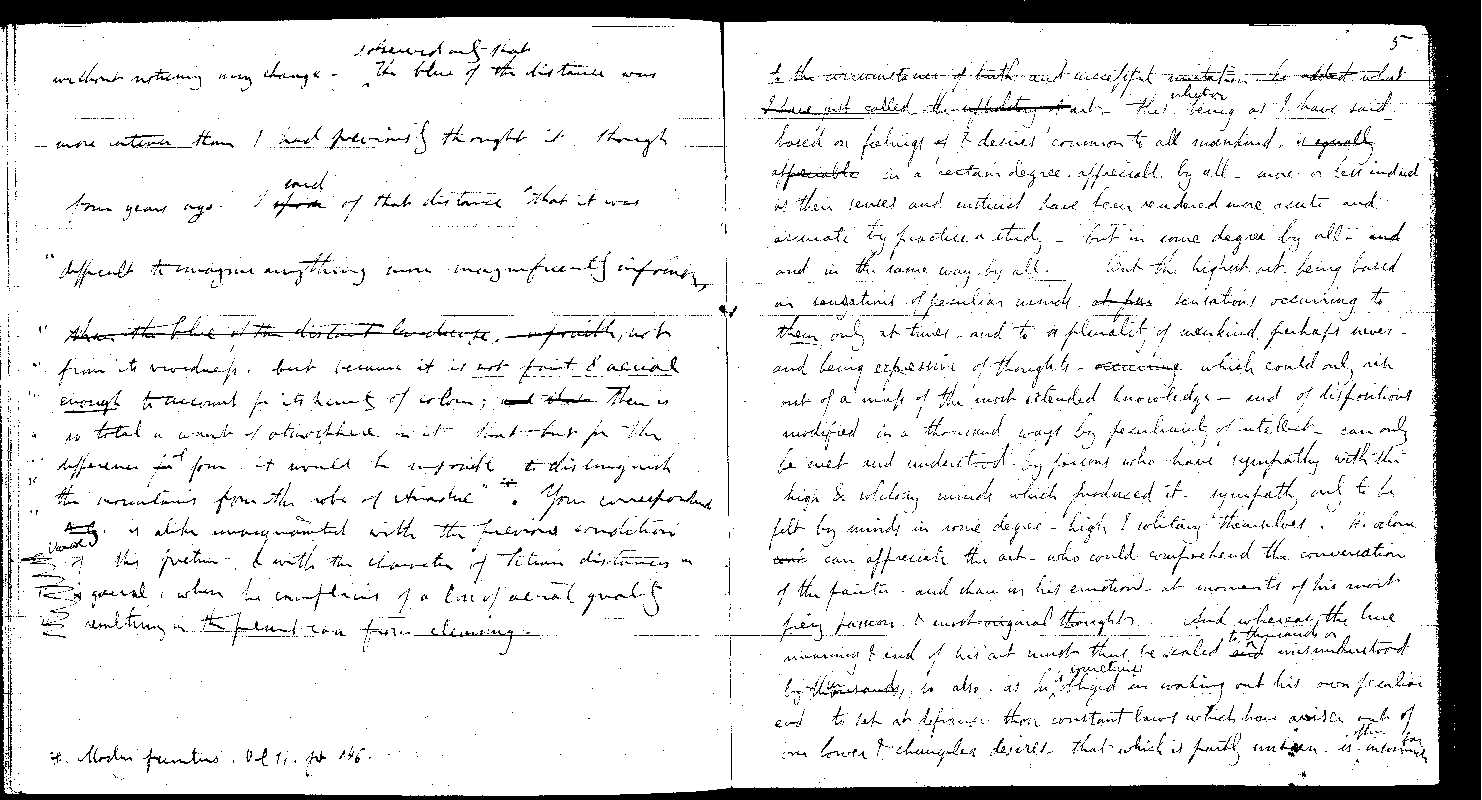 observed only that
without noticing any change - The blue of the distance was
more intense than I had previously thought it though
four years ago. I said spoke of that distance "that it was
"difficult to imagine anything more magnificently impossible,
" than the blue of the distant landscape, - impossible, not
" from its vividness. but because it is not faint & aerial
" enough to account for its purity of colour; and that There is
" so total a want of atmosphere in it that - but for the
" difference in form it would be impossible to distinguish
" the mountains from the robe of Ariadne" *. Your correspondent
is alike unacquainted with the previous condition
of this picture. & with the character of Titian distances in
general. when he complains of a loss of aerial quality
resulting in the present case from cleaning.
*. Modern painters. Vol 1. p 146.
5
to the circumstances of birth and successful imitation he added what
I have just called the upholstery of art - That being as I have said
based on feelings & desires common to all mankind. is equally
appreciable in a certain degree. appreciable by all - more or less indeed
as their senses and instinct have been rendered more acute and
accurate by practice & study - but in some degree by all - and
and in the same way by all. But the highest art being based
on sensations of peculiar minds sensations occurring to
them only at times - and to a plurality of mankind perhaps never -
and being expressive of thoughts - occurring which could only rise
out of a mass of the most extended knowledge - and of dispositions
modified in a thousand ways by peculiarity of intellect - can only
be met and understood by persons who have sympathy with the
high & solitary minds which produced it - sympathy only to be
felt by minds in some degree - high & solitary themselves. He alone
can appreciate the art - who could comprehend the conversation
of the painter - and share in his emotion - at moments of his most
fiery passion & most original thought. And whereas, the true
to thousands or
meaning & end of his art must thus be sealed and misunderstood
sometimes
by thousands, so also as he is obliged in working out his own peculiar
end to set at defiance those constant laws which have arisen out of
our lower & changeless desires - that which is partly unseen is often